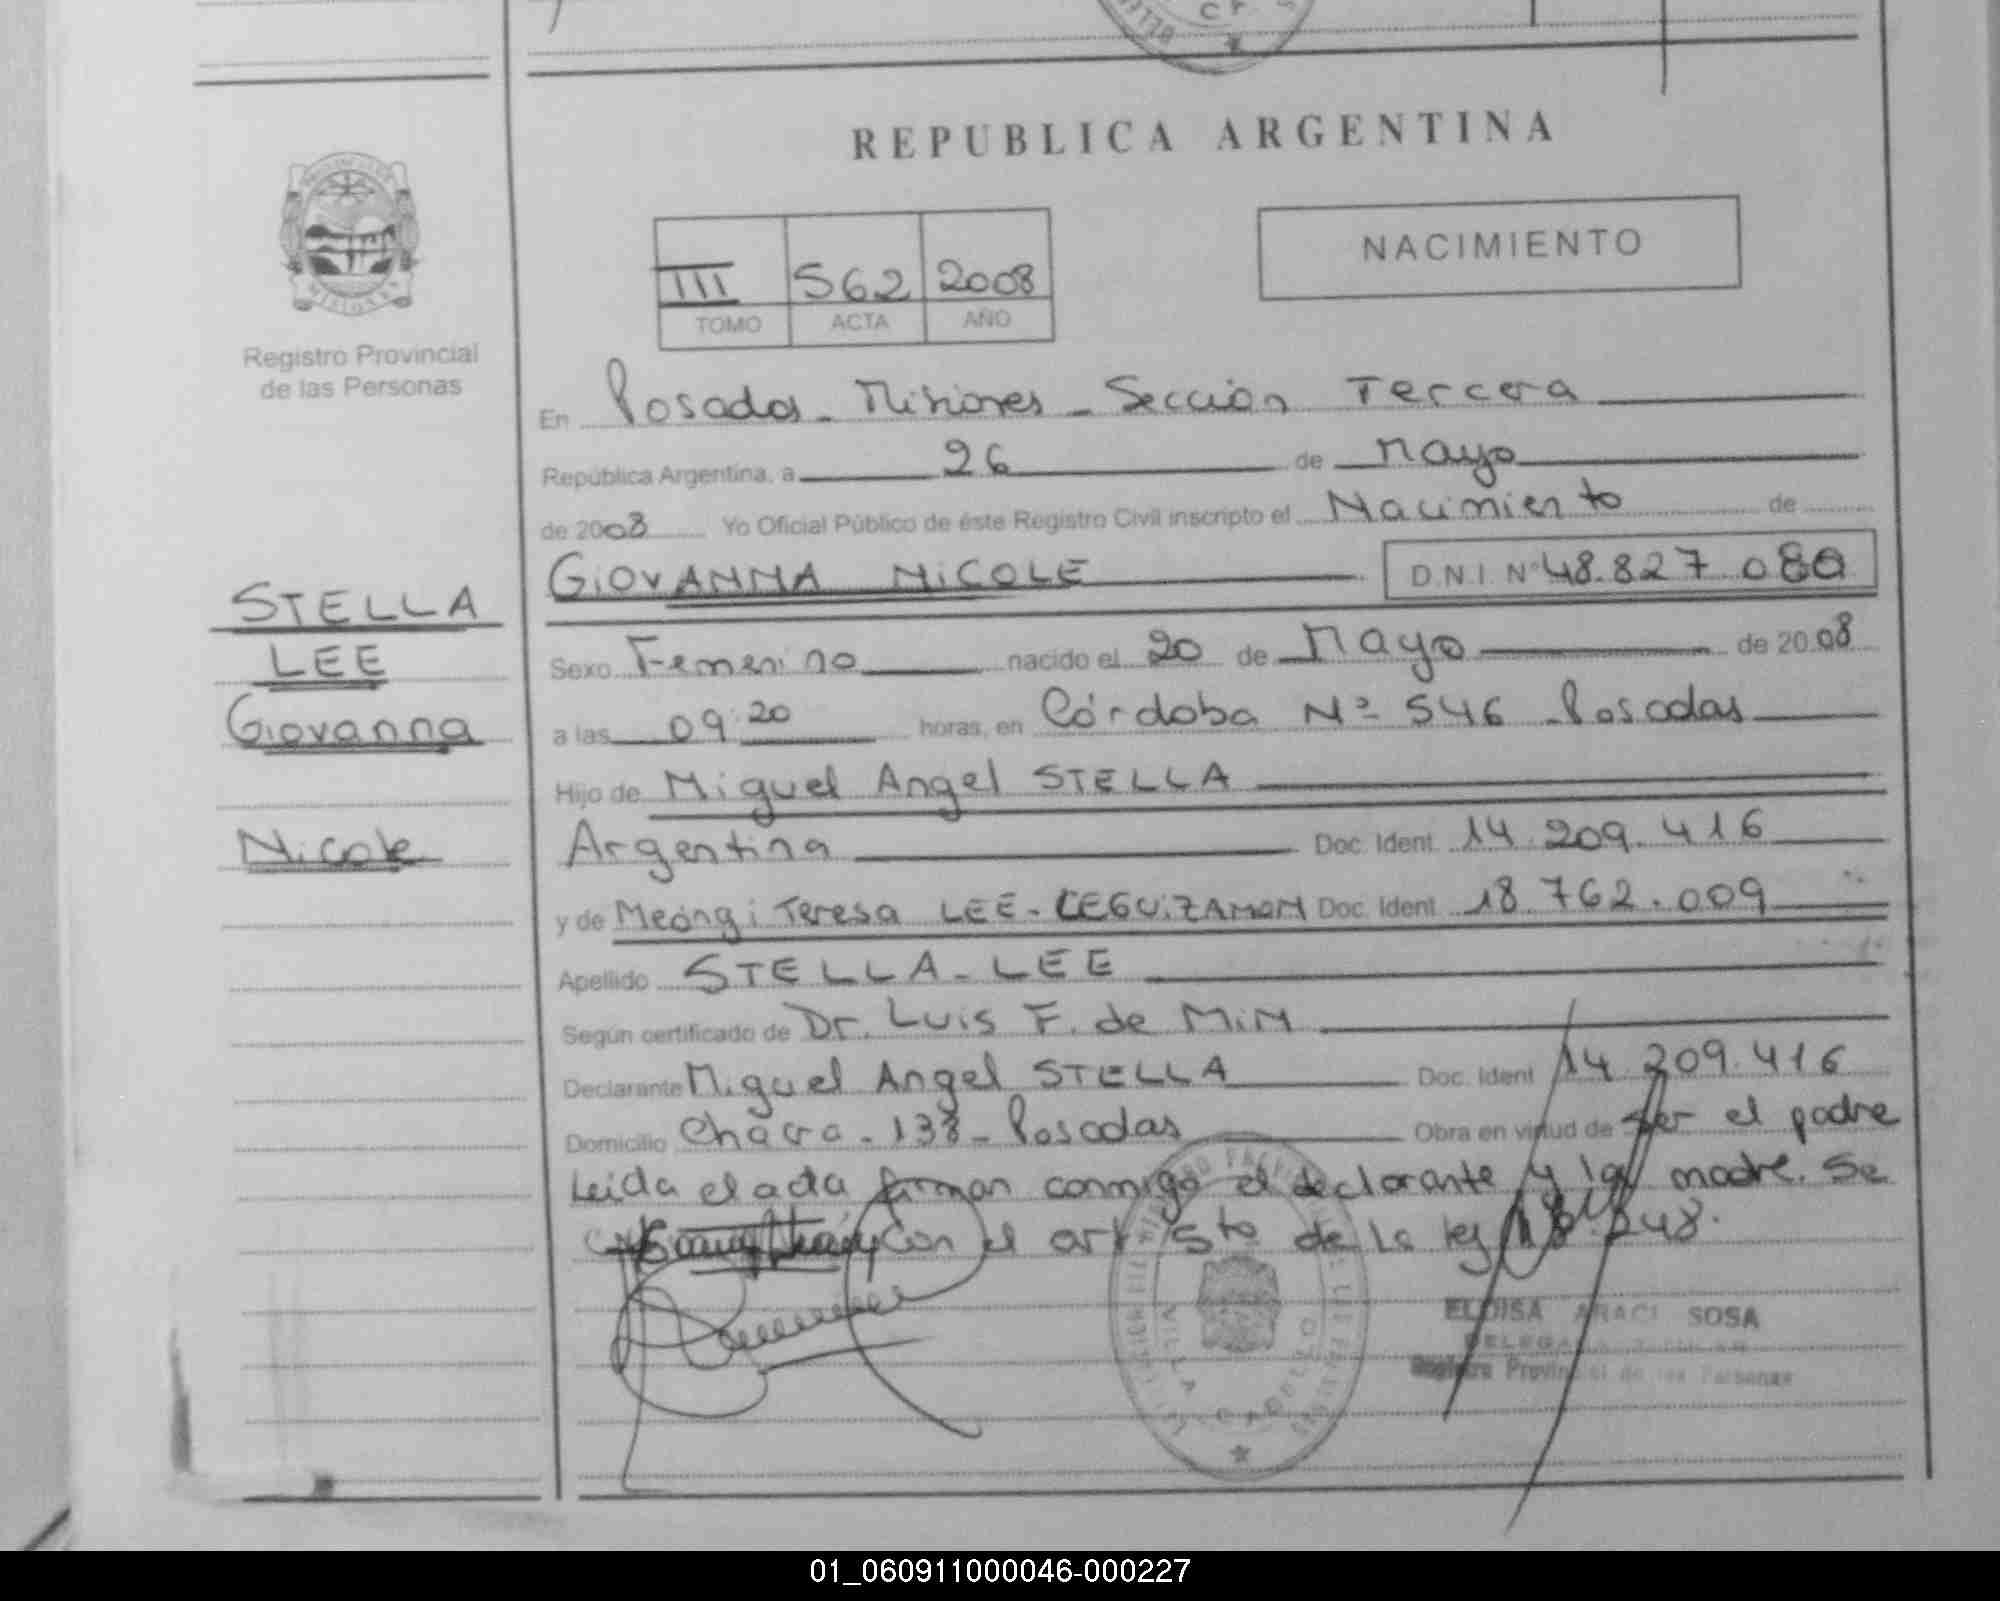 REPUBLICA ARGENTINA
PROVINCIA DE
MISIONES
Registro Provincial
de las Personas
III 562 2008
TOMO ACTA AÑO
NACIMIENTO
En Posadas - Misiones - Sección Tercera
República Argentina, a 26 de Mayo
de 2008 Yo Oficial Público de éste Registro Civil inscripto el Nacimiento de
GiOVANNA NiCOLE D.N.I. Nº 48.827.080
STELLA
LEE
Giovanna
Nicole
Sexo Femenino nacido el 20 de Mayo de 2008
a las 09:20 horas, en Córdoba Nº 546 Posadas
Hijo de Miguel Angel STELLA
Argentina Doc. Ident. 14.209.416
y de Meongi Teresa LEE - LEGUiZAMON Doc. Ident. 18.762.009
Apellido STELLA - LEE
Según certificado de Dr. Luis F. de MiN
Declarante Miguel Angel STELLA Doc. Ident. 14.209.416
Domicilio Chacra - 138 - Posadas Obra en virtud de ser el padre
Leida el acta firman conmigo el declarante y la madre. Se
con el art 5to de la ley 18.248.
ELOISA ARACI SOSA
Registro Provincial de las Personas
VILLA
01_060911000046-000227